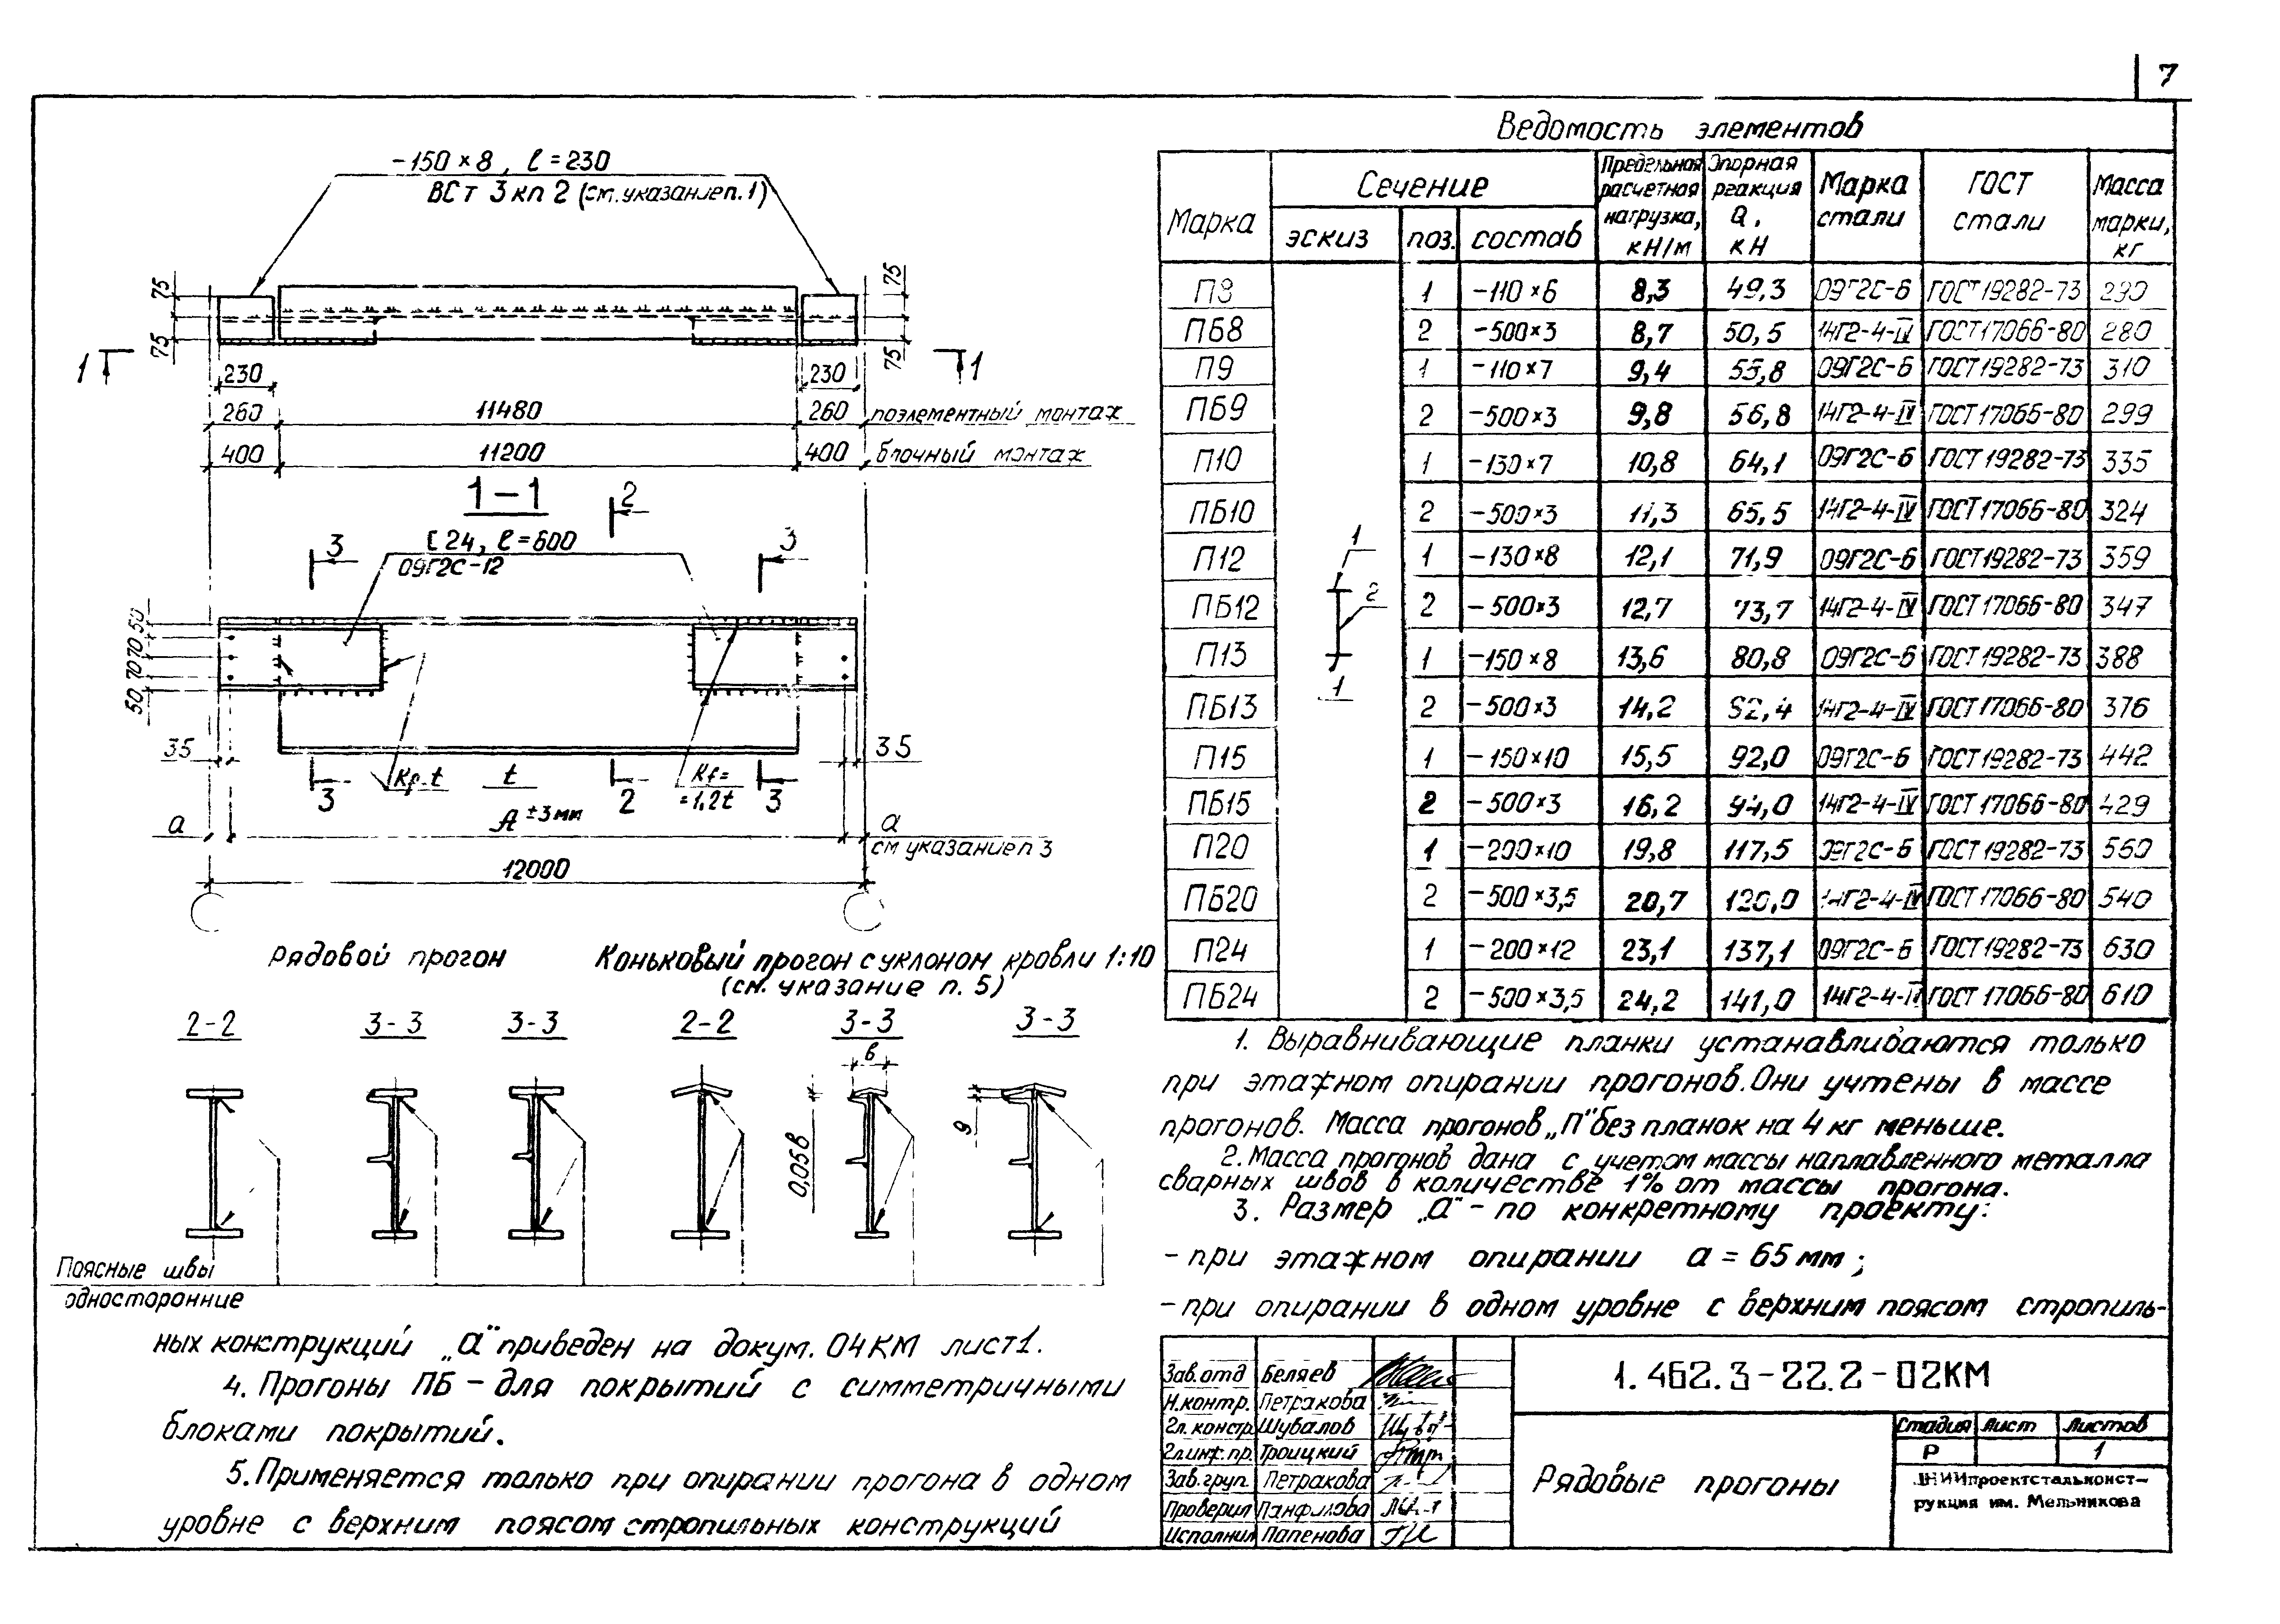 7
-150×8, ℓ=230
ВСт 3кп2 (см. указание п. 1)
75
75
75
75
1
1
230
230
260
11480
260
поэлементный монтаж
400
11200
400
блочный монтаж
1-1
2
3
[24, ℓ=600
09Г2С-12
3
50
70
70
50
35
35
Kf=t
t
Kf=
=1,2t
3
2
3
a
A ±3мм
a
см указание п 3
12000
Рядовой прогон
Коньковый прогон с уклоном кровли 1:10
(см. указание п. 5)
2-2
3-3
3-3
2-2
3-3
3-3
в
0,05в
9
Поясные швы
односторонние
Ведомость элементов
Марка
Сечение
эскиз
поз.
состав
Предельная расчетная нагрузка, кН/м
Опорная реакция Q, кН
Марка стали
ГОСТ стали
Масса марки, кг
1
2
1
П8 1 -110×6 8,3 49,3 09Г2С-6 ГОСТ19282-73 290
ПБ8 2 -500×3 8,7 50,5 14Г2-4-IV ГОСТ17066-80 280
П9 1 -110×7 9,4 55,8 09Г2С-6 ГОСТ19282-73 310
ПБ9 2 -500×3 9,8 56,8 14Г2-4-IV ГОСТ17066-80 299
П10 1 -130×7 10,8 64,1 09Г2С-6 ГОСТ19282-73 335
ПБ10 2 -500×3 11,3 65,5 14Г2-4-IV ГОСТ17066-80 324
П12 1 -130×8 12,1 71,9 09Г2С-6 ГОСТ19282-73 359
ПБ12 2 -500×3 12,7 73,7 14Г2-4-IV ГОСТ17066-80 347
П13 1 -150×8 13,6 80,8 09Г2С-6 ГОСТ19282-73 388
ПБ13 2 -500×3 14,2 14Г2-4-IV ГОСТ17066-80 376
П15 1 -150×10 15,5 92,0 09Г2С-6 ГОСТ19282-73 442
ПБ15 2 -500×3 16,2 94,0 14Г2-4-IV ГОСТ17066-80 429
П20 1 -200×10 19,8 117,5 09Г2С-6 ГОСТ19282-73 560
ПБ20 2 -500×3,5 20,7 120,0 14Г2-4-IV ГОСТ17066-80 540
П24 1 -200×12 23,1 137,1 09Г2С-6 ГОСТ19282-73 630
ПБ24 2 -500×3,5 24,2 141,0 14Г2-4-IV ГОСТ17066-80 610
1. Выравнивающие планки устанавливаются только
при этажном опирании прогонов. Они учтены в массе
прогонов. Масса прогонов „П" без планок на 4 кг меньше.
2. Масса прогонов дана с учетом массы наплавленного металла
сварных швов в количестве 1% от массы прогона.
3. Размер „а" - по конкретному проекту:
- при этажном опирании а = 65 мм;
- при опирании в одном уровне с верхним поясом стропиль-
ных конструкций „а" приведен на докум. 04КМ лист1.
4. Прогоны ПБ - для покрытий с симметричными
блоками покрытий.
5. Применяется только при опирании прогона в одном
уровне с верхним поясом стропильных конструкций
Зав. отд Беляев
Н.контр. Петракова
Гл. констр. Шувалов
Гл.инж.пр. Троицкий
Зав. груп. Петракова
Проверил Панфилова
Исполнил Папенова
1.462.3-22.2-02КМ
Рядовые прогоны
Стадия Лист Листов
Р 1
ЦНИИпроектстальконст-
рукция им. Мельникова